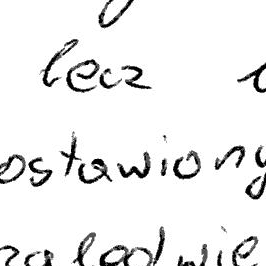 lecz
ostawiony
zaledwie